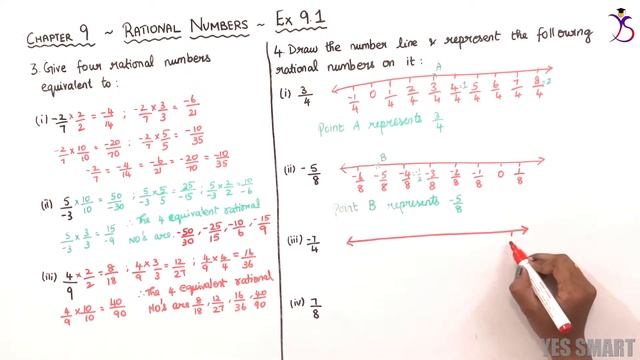 CHAPTER 9 ~ RATIONAL NUMBERS ~ EX 9.1
YS
3. Give four rational numbers
equivalent to :
(i) -2/7 × 2/2 = -4/14 ; -2/7 × 3/3 = -6/21
-2/7 × 10/10 = -20/70 ; -2/7 × 5/5 = -10/35
-2/7 = -4/14 = -6/21 = -20/70 = -10/35
(ii) 5/-3 × 10/10 = 50/-30 ; 5/-3 × 5/5 = 25/-15 ; 5/-3 × 2/2 = 10/-6
5/-3 × 3/3 = 15/-9 ∴ The 4 equivalent rational
NO's are -50/30, -25/15, -10/6, -15/9
(iii) 4/9 × 2/2 = 8/18 ; 4/9 × 3/3 = 12/27 ; 4/9 × 4/4 = 16/36
4/9 × 10/10 = 40/90 ∴ The 4 equivalent rational
NO's are 8/18, 12/27, 16/36, 40/90
4. Draw the number line & represent the following
rational numbers on it :
(i) 3/4
A
-1/4 0 1/4 2/4 3/4 4/4=1 5/4 6/4 7/4 8/4=2
Point A represents 3/4
(ii) -5/8
B
-6/8 -5/8 -4/8 -3/8 -2/8 -1/8 0 1/8
Point B represents -5/8
(iii) -7/4
(iv) 7/8
YES SMART